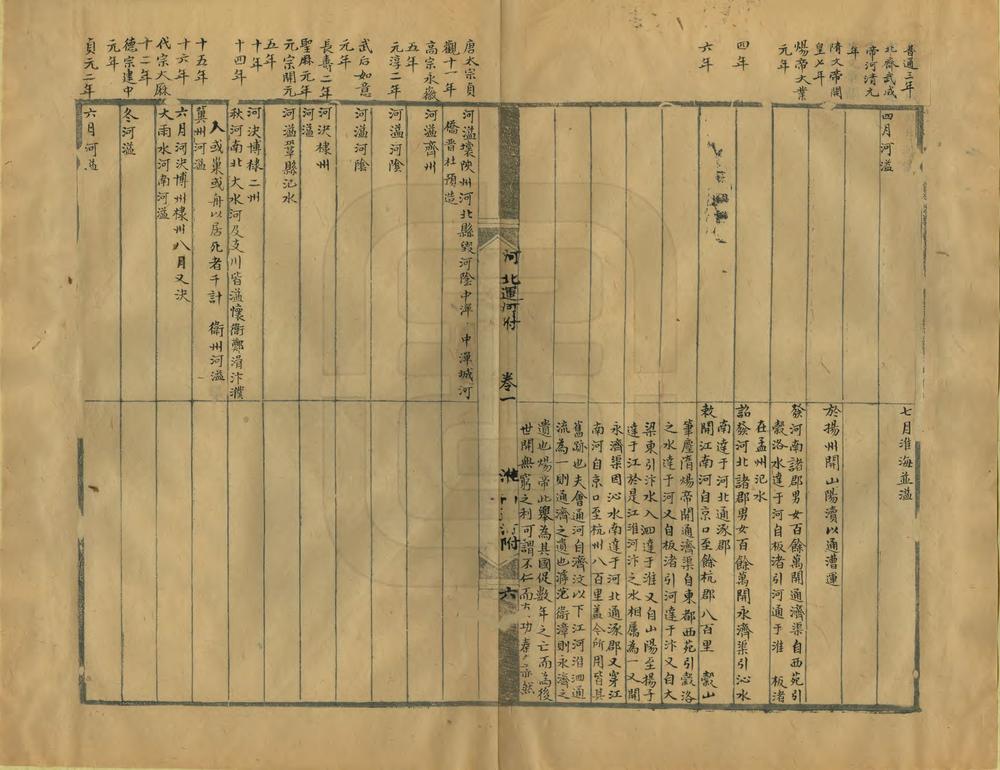 普通三年
北齊武成
帝河清元
年
四月河溢
隋文帝開
皇七年
煬帝大業
元年
四年
六年
七月淮海並溢
於揚州開山陽瀆以通漕運
發河南諸郡男女百餘萬開通濟渠自西苑引
穀洛水達于河自板渚引河通于淮 板渚
在孟州汜水
詔發河北諸郡男女百餘萬開永濟渠引沁水
南達于河北通涿郡
敕開江南河自京口至餘杭郡八百里 穀山
筆麈隋煬帝開通濟渠自東都西苑引穀洛
之水達于河又自板渚引河達于汴又自大
梁東引汴水入泗達于淮又自山陽至揚子
達于江於是江淮河汴之水相屬為一又開
永濟渠因沁水南達于河北通涿郡又穿江
南河自京口至杭州八百里蓋今所用皆其
舊跡也夫會通河自濟汶以下江河淮泗通
流為一則通濟之遺也滹沱衛漳則永濟之
遺也煬帝此舉為其國促數年之亡而為後
世開無窮之利可謂不仁而有功秦亦然
河北運河附
卷一
淮
河附
六
唐太宗貞
觀十一年
河溢壞陝州河北縣毀河陰中潬 中潬城河
僑晋杜預造
高宗永徽
五年
河溢齊州
元淳二年
河溢河陰
武后如意
元年
河溢河陰
長壽二年
河決棣州
聖麻元年
河溢
元宗開元
五年
河溢鞏縣汜水
十年
河決博棣二州
十四年
秋河南北大水河及支川皆溢懷衛鄭滑汴濮
人或巢或舟以居死者千計 衛州河溢
十五年
冀州河溢
十六年
六月河決博州棣州八月又決
代宗大麻
十二年
大雨水河南河溢
德宗建中
元年
冬河溢
貞元二年
六月河溢